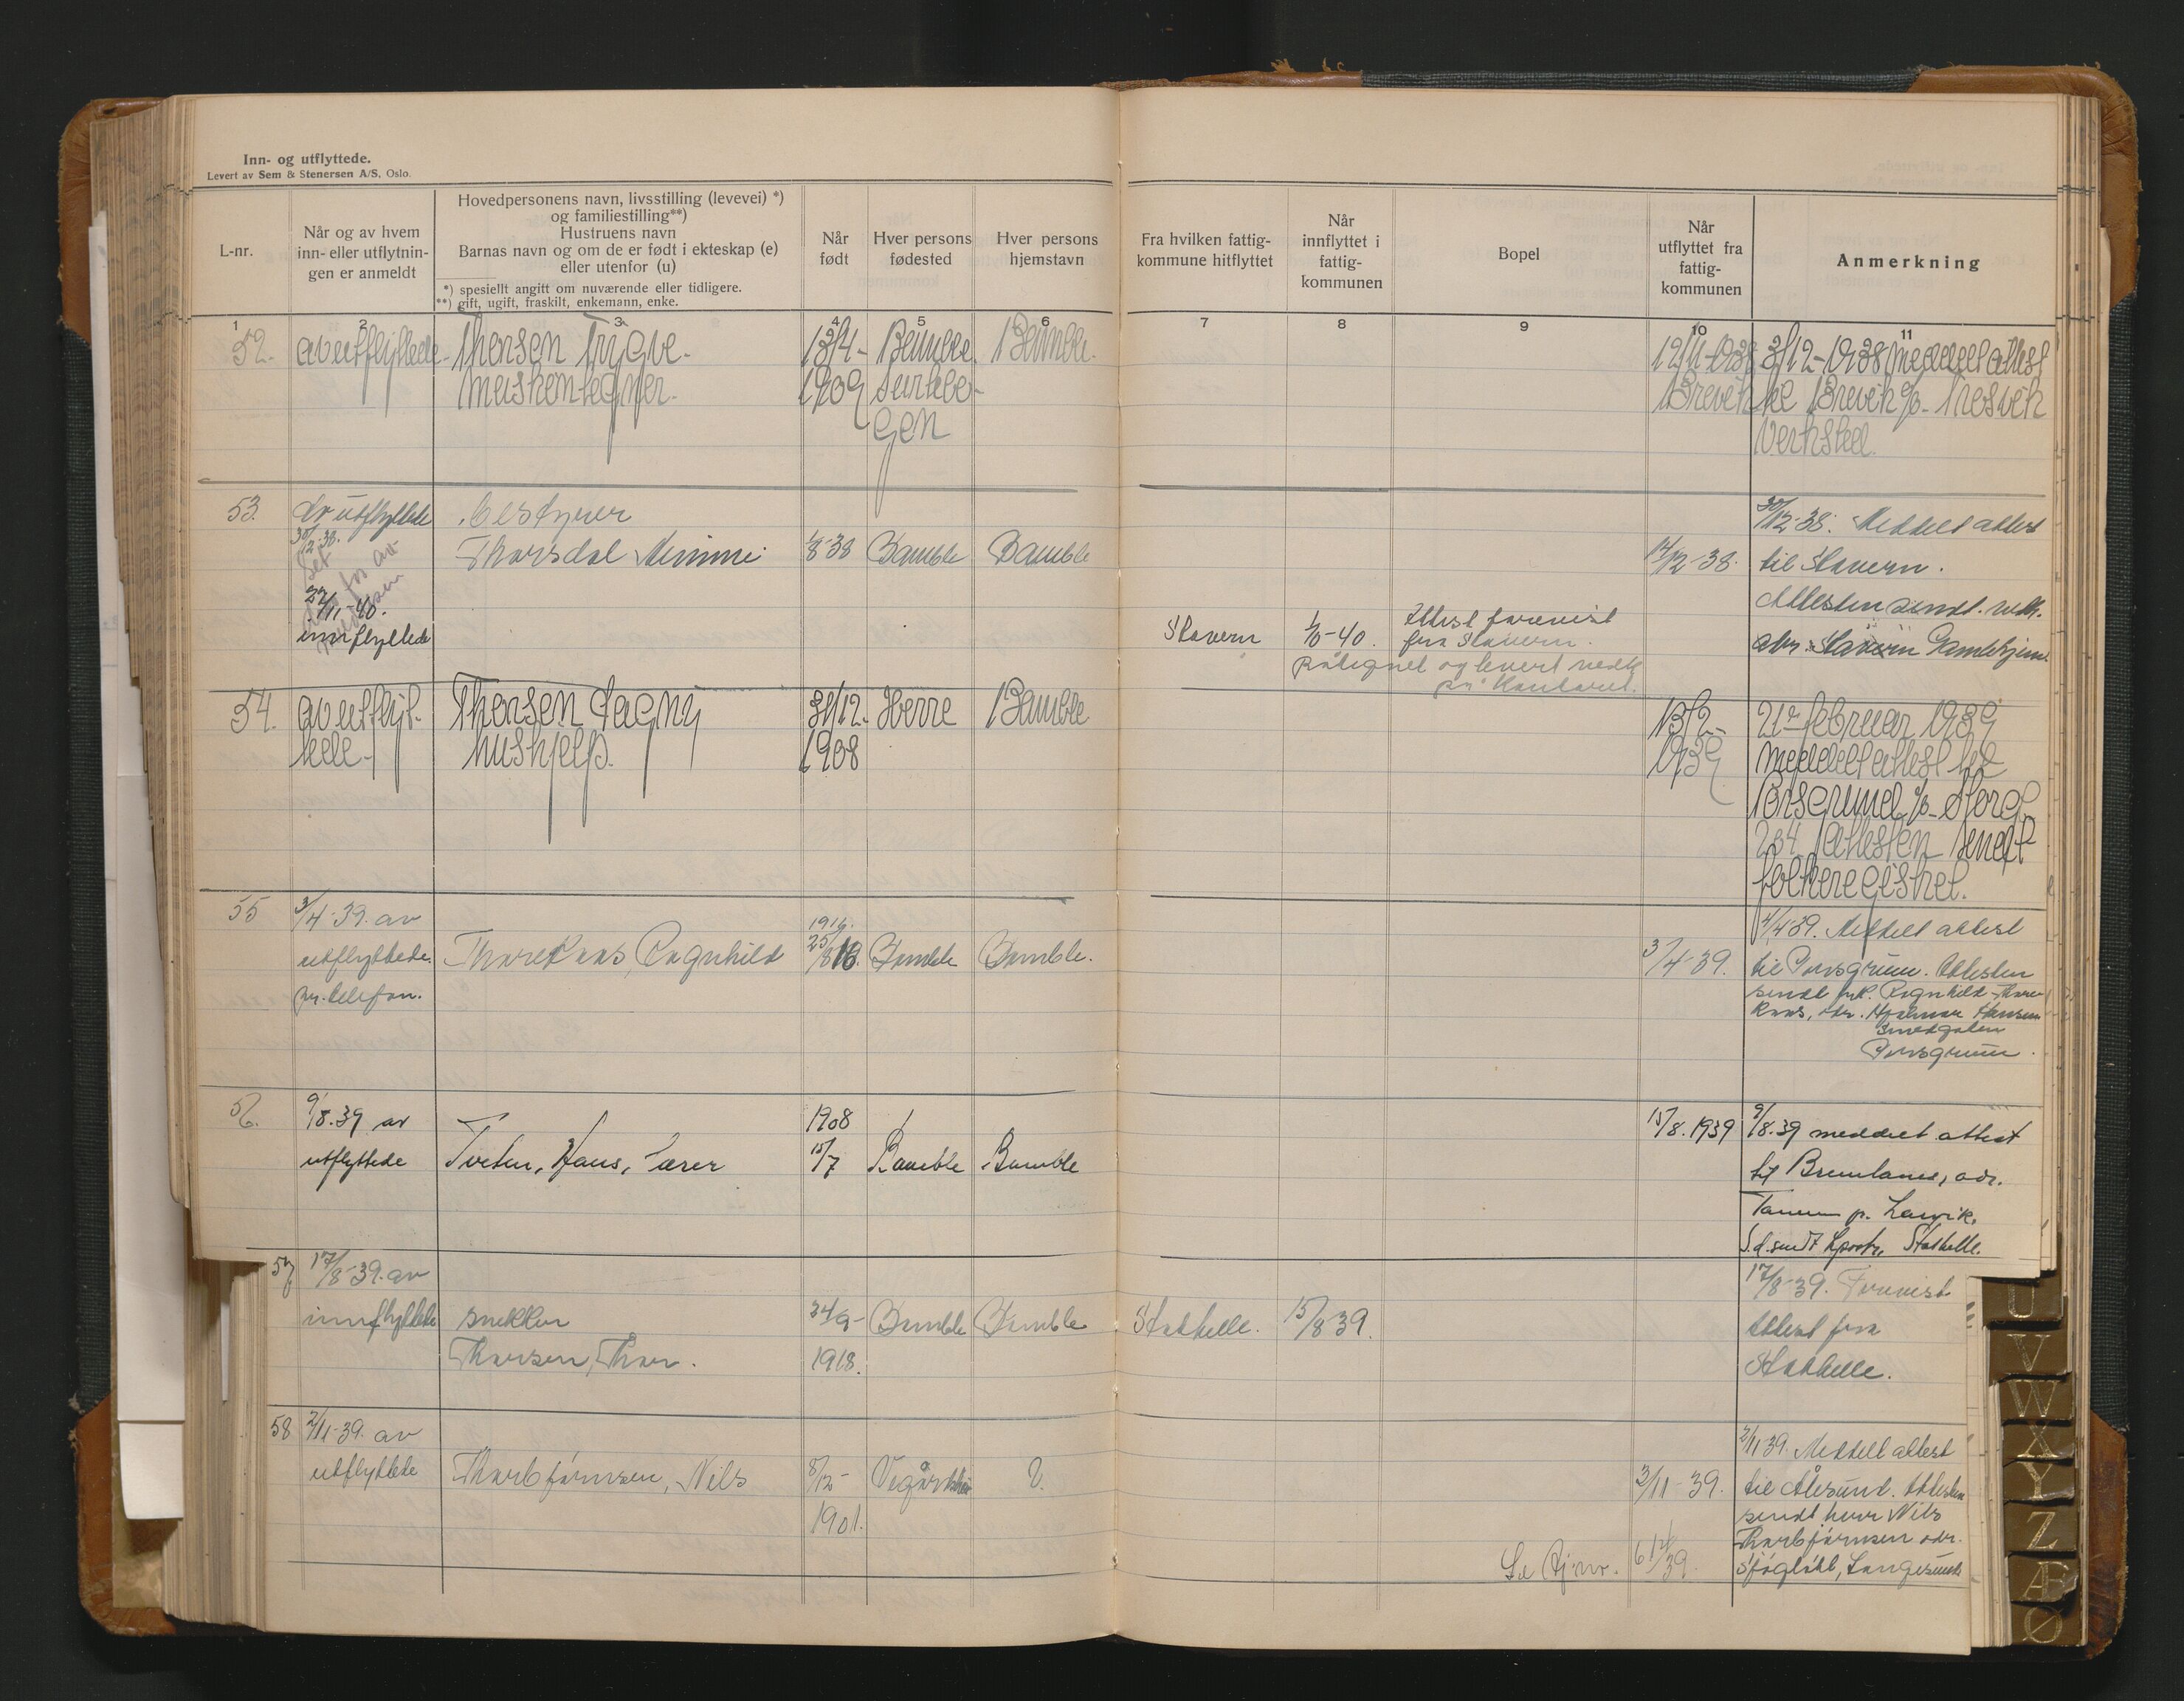 Inn- og utflyttede.
Levert av Sem & Stenersen A/S, Oslo.
L-nr.
Når og av hvem
inn- eller utflytnin-
gen er anmeldt
Hovedpersonens navn, livsstilling (levevei) *)
og familiestilling**)
Hustruens navn
Barnas navn og om de er født i ekteskap (e)
eller utenfor (u)
*) spesiellt angitt om nuværende eller tidligere.
**) gift, ugift, fraskilt, enkemann, enke.
Når
født
Hver persons
fødested
Hver persons
hjemstavn
Fra hvilken fattig-
kommune hitflyttet
Når
innflyttet i
fattig-
kommunen
Bopel
Når
utflyttet fra
fattig-
kommunen
Anmerkning
1 2 3 4 5 6 7 8 9 10 11
52. av utflyttede Thorsen Trygve. 13/4- Bamble Bamble. 12/11-1938 3/12-1938 Meddelt attest
1909 Brevik til Brevik c/o Trosvik
gen Verksted.
53. Av utflyttede Bestyrer 30/12-38. Meddelt attest
30/12-38.
Thorsdal Mimmi 1/8-38 Bamble Bamble 14/12-38. til Stavern.
22/11-40. Attesten sendt. vedk.
innflyttede Stavern 1/10-40. Attest forevist adr. Stavern Gamlehjem.
fra Stavern.
Påtegnet og levert vedk
på kontoret.
54. av utflyt- Thorsen Dagny 31/12- Herre Bamble 13/2- 21de februar 1939
tede- hushjelp. 1908 1939 meddelt attest til
Porsgrund c/o Storg.
234 attesten sendt
folkeregistret.
55 3/4-39. av 1916. 4/4 39. Meddelt attest
utflyttede. Thorekaas, Ragnhild 25/8 16. Bamble Bamble. 3/4-39. til Porsgrunn. Attesten
pr. telefon. sendt frk. Ragnhild Thore-
kaas, adr. Hjalmar Hansen
Smedgaten
Porsgrunn.
56. 9/8.39 av 1908 15/8.1939 9/8.39 meddelt attest
utflyttede Tveten, Hans, lærer 15/7 Bamble Bamble til Brunlanes, adr.
Tanum p. Larvik.
S.d. sendt Stathelle.
57 17/8-39. av 17/8-39. Forevist
innflyttede snekker 24/9- Bamble Bamble Stathelle. 15/8-39. attest fra
Thorsen, Thor. 1918. Stathelle.
58 2/11-39. av 2/11 39. Meddelt attest
utflyttede Thorbjørnsen, Nils 8/12- Vegårshei ?. 3/11-39. til Ålesund. Attesten
1901. sendt herr Nils
Thorbjørnsen adr.
Sjøgløtt, Langesund
U
V
W
X
Y
Z
Æ
Ø